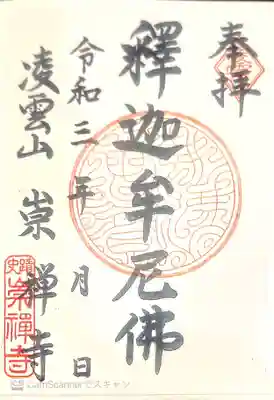 奉拝
釋迦牟尼佛
令和三年 月 日
凌雲山 崇禅寺
史蹟
崇禪寺
CamScannerでスキャン